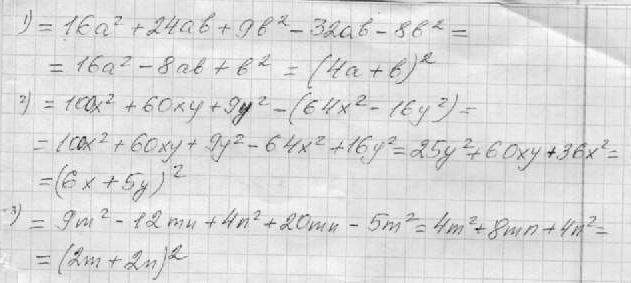 1) = 16a² + 24ab + 9b² - 32ab - 8b² =
= 16a² - 8ab + b² = (4a + b)²
2) = 100x² + 60xy + 9y² - (64x² - 16y²) =
= 100x² + 60xy + 9y² - 64x² + 16y² = 25y² + 60xy + 36x² =
= (6x + 5y)²
3) = 9m² - 12mn + 4n² + 20mn - 5m² = 4m² + 8mn + 4n² =
= (2m + 2n)²